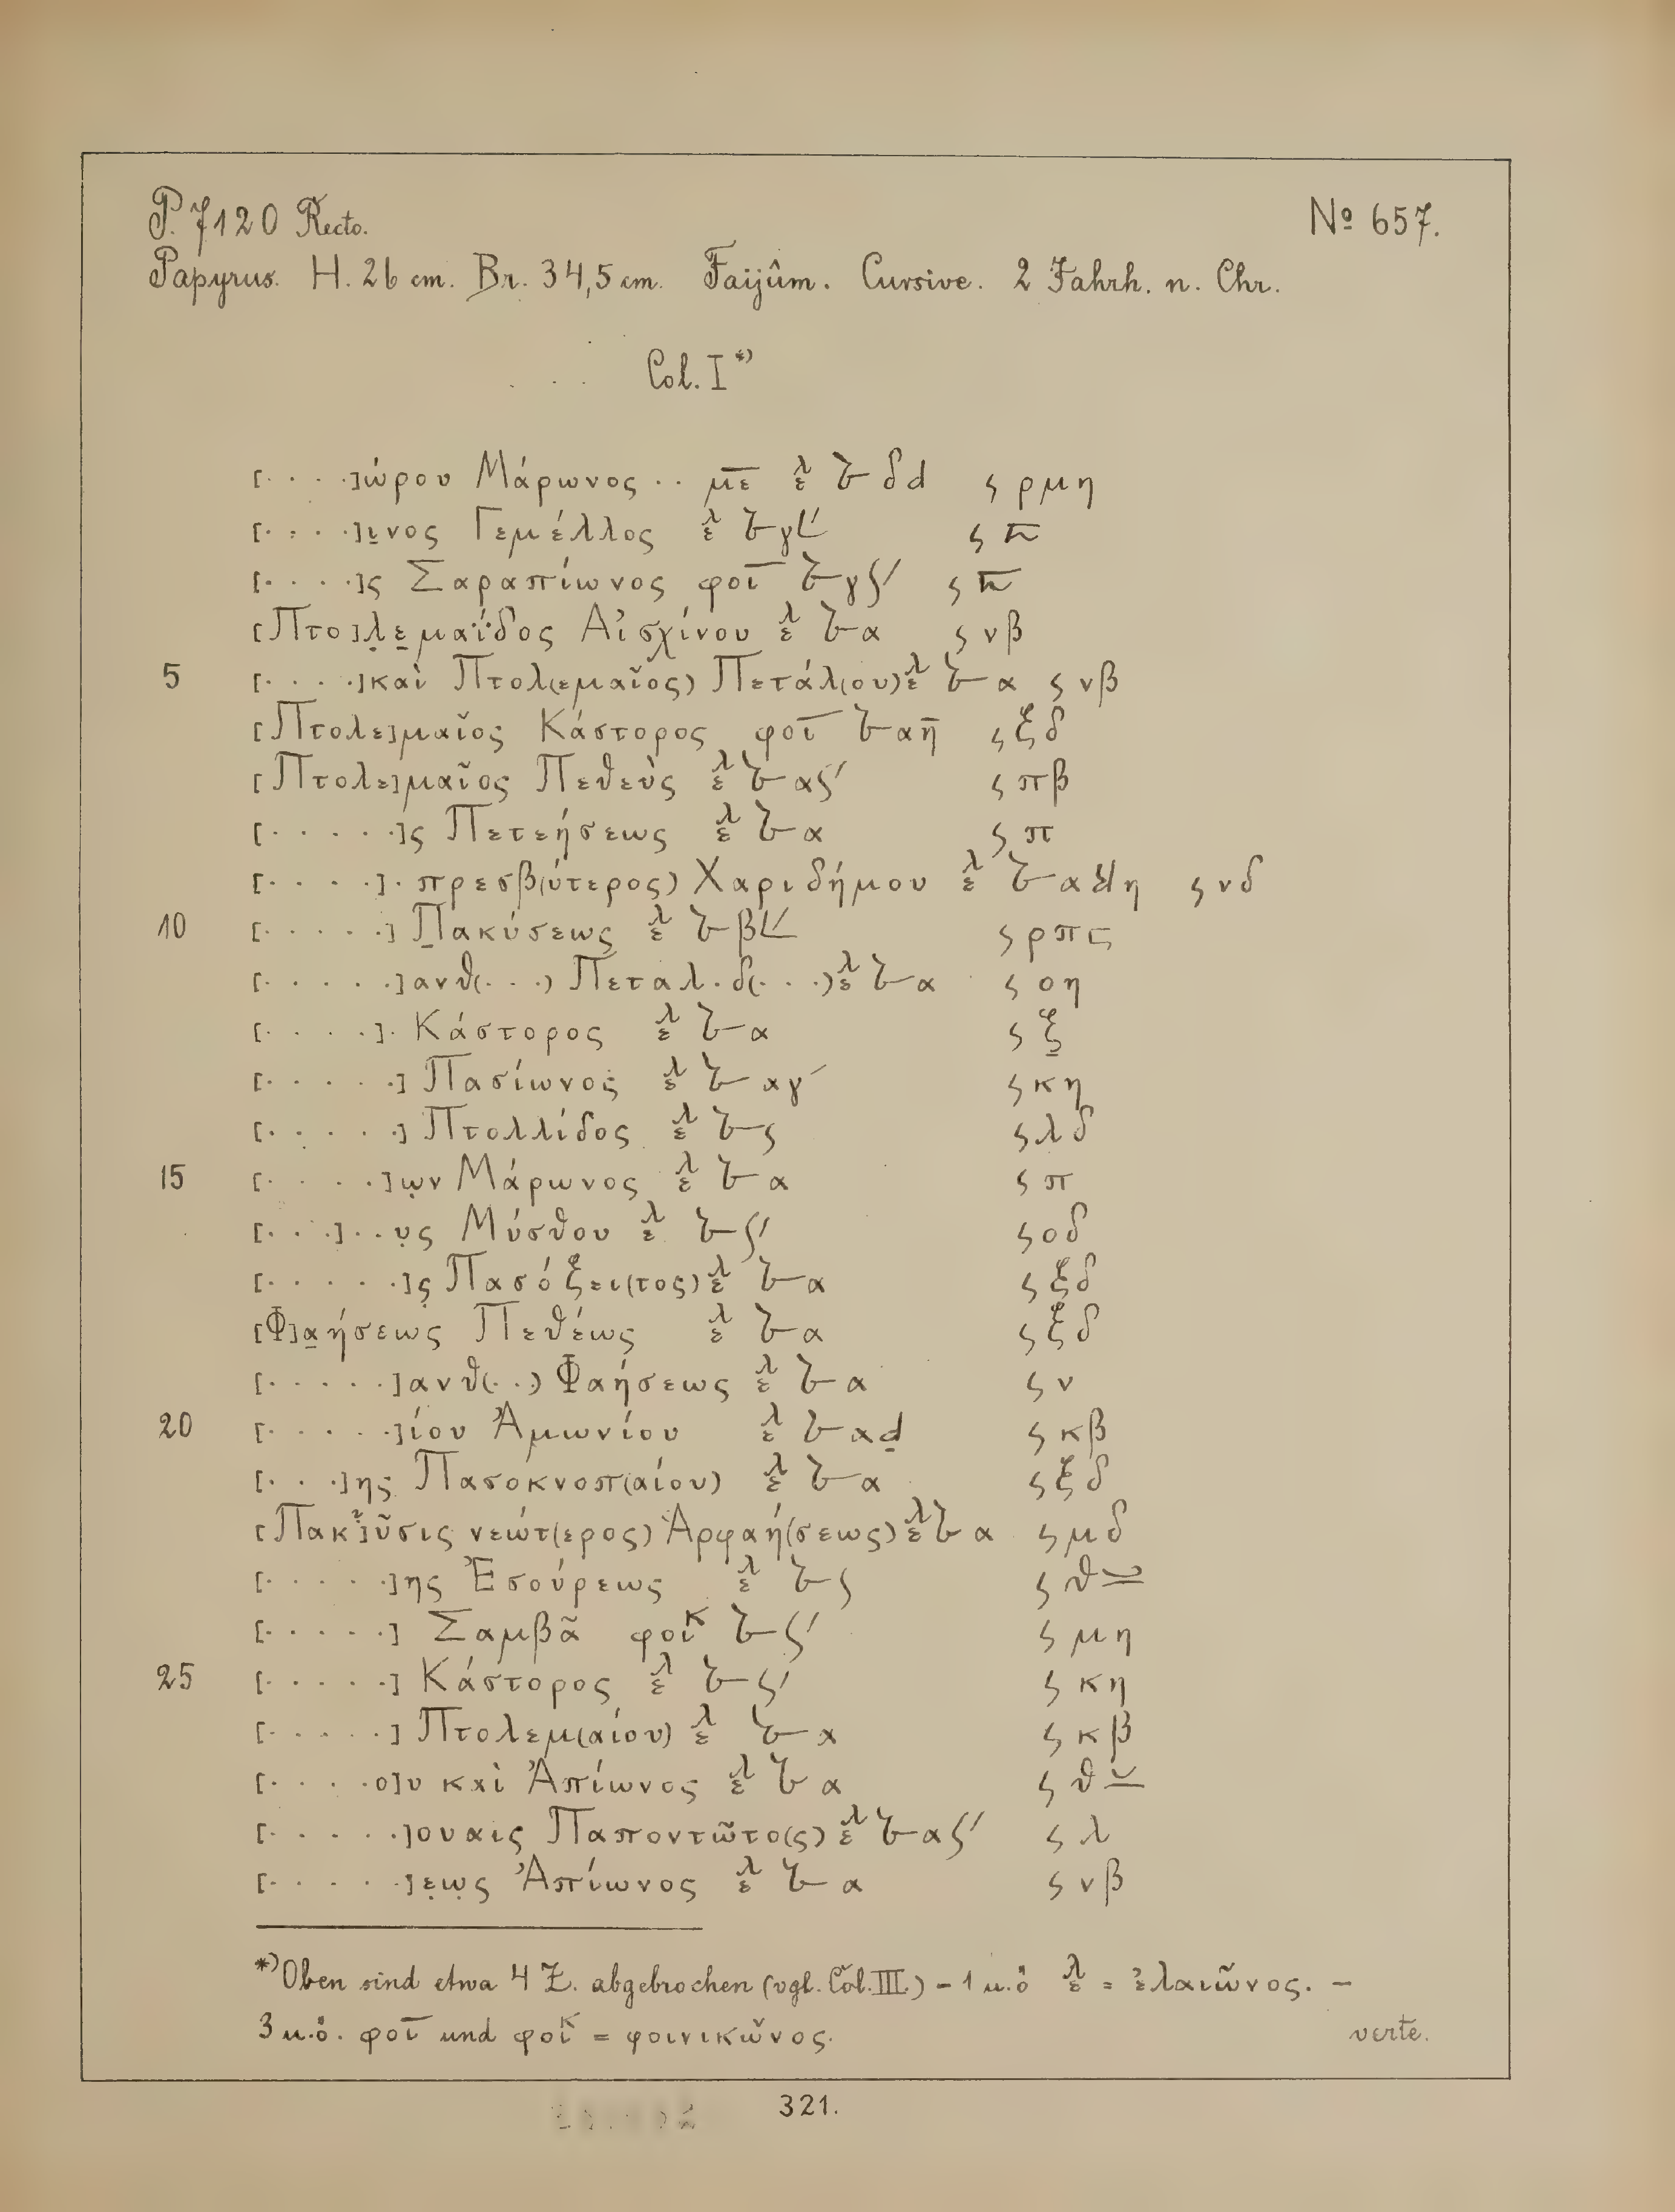 P. 7120 Recto.
№ 657.
Papyrus. H. 26 cm. Br. 34,5 cm. Faijûm. Cursive. 2 Jahrh. n. Chr.
Col. I *)
[· · · ·]ώρου Μάρωνος ·· με̅ ελ ῾Ⴆ δd ς ρμη
[· · · ·]ι̣νος Γεμέλλος ελ Ⴆ γL ́ ς π̅
[· · · ·]ς Σαραπίωνος φοι̅ Ⴆ γϛ´ ς π̅
[Πτο]λ̣ε̣μαΐδος Αἰσχίνου ελ Ⴆ α ς νβ
5 [· · · ·]καὶ Πτολ(εμαῖος) Πετάλ(ου) ελ Ⴆ α ς νβ
[Πτολε]μαῖος Κάστορος φοι̅ Ⴆ αη̅ ς ξδ
[Πτολε]μαῖος Πεθεὺς ελ Ⴆ αϛ´ ς πβ
[· · · · ·]ς Πετεήσεως ελ Ⴆ α ς π
[· · · ·]· πρεσβ(ύτερος) Χαριδήμου ελ Ⴆ α η ς νδ
10 [· · · · ·] Π̣ακύσεως ελ Ⴆ βL ́ ς ρπϛ
[· · · · ·]ανθ(· · ·) Πεταλ · δ(· · ·) ελ Ⴆ α ς οη
[· · · ·]· Κάστορος ελ Ⴆ α ς ξ̣
[· · · · ·] Πασίωνος ελ Ⴆ αγ´ ς κη
[· · · · ·] Πτολλίδος ελ Ⴆ ς ς λδ
15 [· · · ·]ω̣ν Μάρωνος ελ Ⴆ α ς π
[· · ·]· · υ̣ς Μύσθου ελ Ⴆ ϛ´ ς οδ
[· · · · ·]ς̣ Πασόξει(τος) ελ Ⴆ α ς ξδ
[Φ]α̣ήσεως Πεθέως ελ Ⴆ α ς ξδ
[· · · · ·]ανθ(· ·) Φαήσεως ελ Ⴆ α ς ν
20 [· · · · ·]ίου Ἀμωνίου ελ Ⴆ αḍ ς κβ
[· · ·]ης Πασοκνοπ(αίου) ελ Ⴆ α ς ξδ
[Πακ?]ῦσις νεώτ(ερος) Ἁρφαή(σεως) ελ Ⴆ α ς μδ
[· · · · ·]ης Ἐσούρεως ελ Ⴆ ς ς θ
[· · · · ·] Σαμβᾶ φοικ Ⴆ ϛ´ ς μη
25 [· · · · ·] Κάστορος ελ Ⴆ ϛ´ ς κη
[· · · · ·] Πτολεμ(αίου) ελ Ⴆ α ς κβ
[· · · · ο]υ καὶ Ἀπίωνος ελ Ⴆ α ς θ
[· · · · ·]ουαις Παποντῶτο(ς) ελ Ⴆ αϛ´ ς λ
[· · · · ·]ε̣ω̣ς Ἀπίωνος ελ Ⴆ α ς νβ
*) Oben sind etwa 4 Z. abgebrochen (vgl. Col. III.) – 1 u. ö ελ = ἐλαιῶνος. –
3 u. ö. φοι̅ und φοικ = φοινικῶνος.
verte.
321.